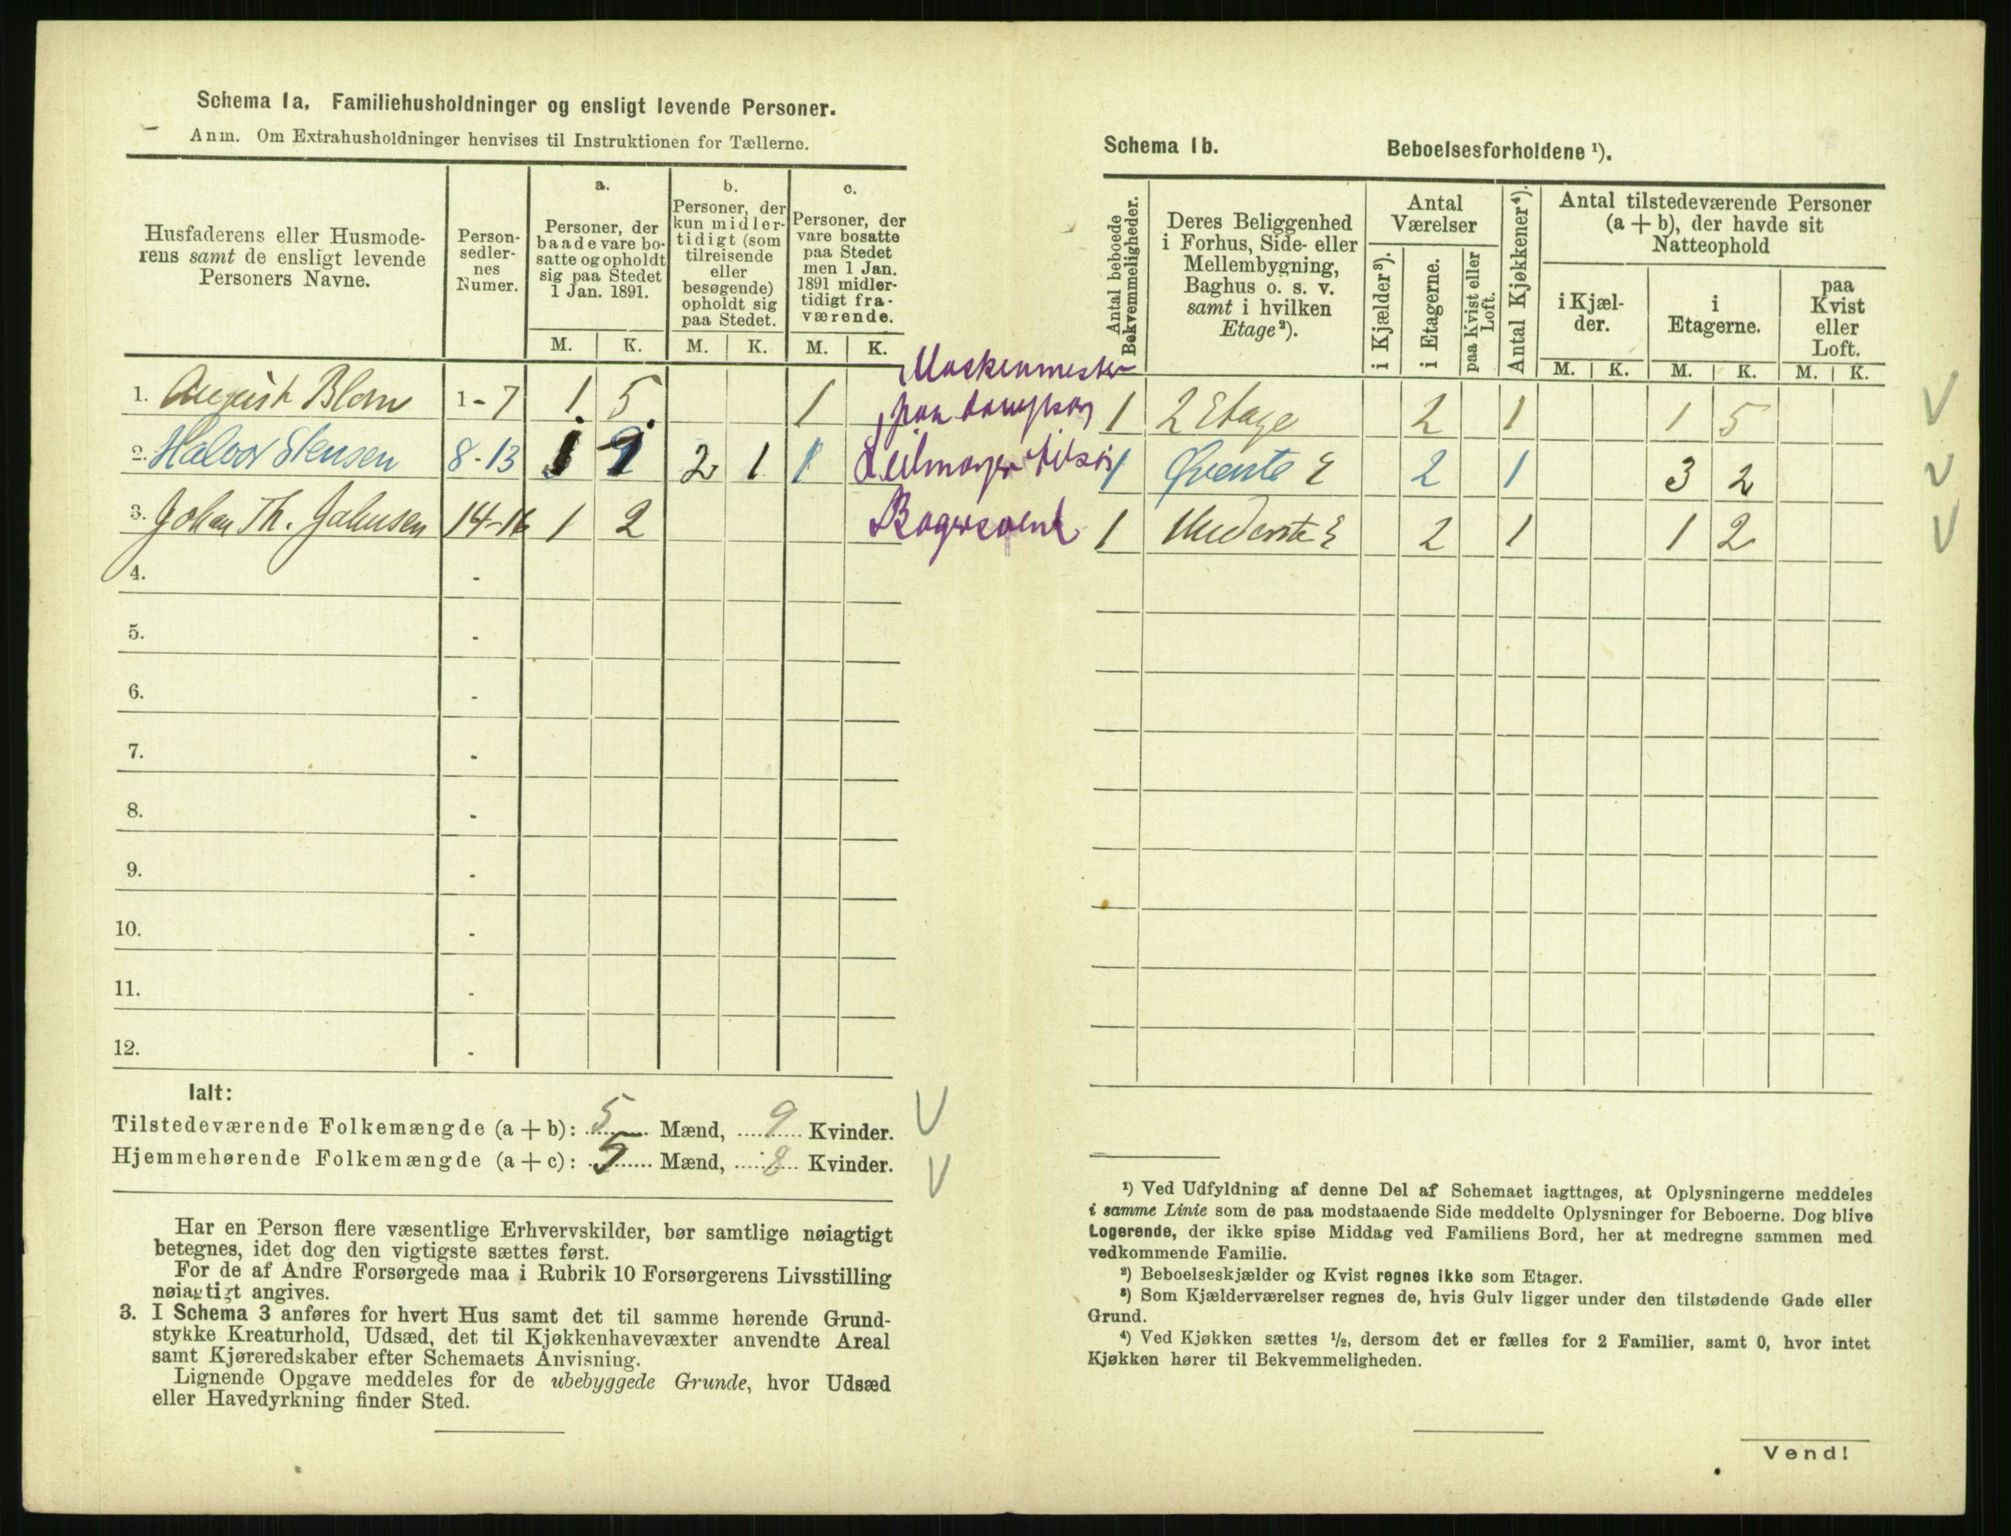 Schema 1a. Familiehusholdninger og ensligt levende Personer.
Anm. Om Extrahusholdninger henvises til Instruktionen for Tællerne.
Husfaderens eller Husmode-
rens samt de ensligt levende
Personers Navne.
Person-
sedler-
nes
Numer.
a.
Personer, der
baade vare bo-
satte og opholdt
sig paa Stedet
1 Jan. 1891.
b.
Personer, der
kun midler-
tidigt (som
tilreisende
eller
besøgende)
opholdt sig
paa Stedet.
c.
Personer, der
vare bosatte
paa Stedet
men 1 Jan.
1891 midler-
tidigt fra-
værende.
M. K. M. K. M. K.
1. August Blom 1-7 1 5 1
2. Halvor Stensen 8-13 2 1 1
3. Johan Th. Johnsen 14-16 1 2
4. -
5. -
6. -
7. -
8. -
9. -
10. -
11. -
12. -
Ialt:
Tilstedeværende Folkemængde (a + b): 5 Mænd, 9 Kvinder.
Hjemmehørende Folkemængde (a + c): 5 Mænd, 8 Kvinder.
Har en Person flere væsentlige Erhvervskilder, bør samtlige nøiagtigt
betegnes, idet dog den vigtigste sættes først.
For de af Andre Forsørgede maa i Rubrik 10 Forsørgerens Livsstilling
nøiagtigt angives.
3. I Schema 3 anføres for hvert Hus samt det til samme hørende Grund-
stykke Kreaturhold, Udsæd, det til Kjøkkenhavevæxter anvendte Areal
samt Kjøreredskaber efter Schemaets Anvisning.
Lignende Opgave meddeles for de ubebyggede Grunde, hvor Udsæd
eller Havedyrkning finder Sted.
Maskenmester
paa
Bagersvend
Schema 1b. Beboelsesforholdene ¹).
Antal beboede
Bekvemmeligheder.
Deres Beliggenhed
i Forhus, Side- eller
Mellembygning,
Baghus o. s. v.
samt i hvilken
Etage²).
Antal
Værelser
i Kjælder³).
i Etagerne.
paa Kvist eller
Loft.
Antal Kjøkkener⁴).
Antal tilstedeværende Personer
(a + b), der havde sit
Natteophold
i Kjæl-
der.
i
Etagerne.
paa
Kvist
eller
Loft.
M. K. M. K. M. K.
1 2 Etage 2 1 1 5
1 Øverste E 2 1 3 2
1 Underste E 2 1 1 2
¹) Ved Udfyldning af denne Del af Schemaet iagttages, at Oplysningerne meddeles
i samme Linie som de paa modstaaende Side meddelte Oplysninger for Beboerne. Dog blive
Logerende, der ikke spise Middag ved Familiens Bord, her at medregne sammen med
vedkommende Familie.
²) Beboelseskjælder og Kvist regnes ikke som Etager.
³) Som Kjælderværelser regnes de, hvis Gulv ligger under den tilstødende Gade eller
Grund.
⁴) Ved Kjøkken sættes ½, dersom det er fælles for 2 Familier, samt 0, hvor intet
Kjøkken hører til Bekvemmeligheden.
Vend!